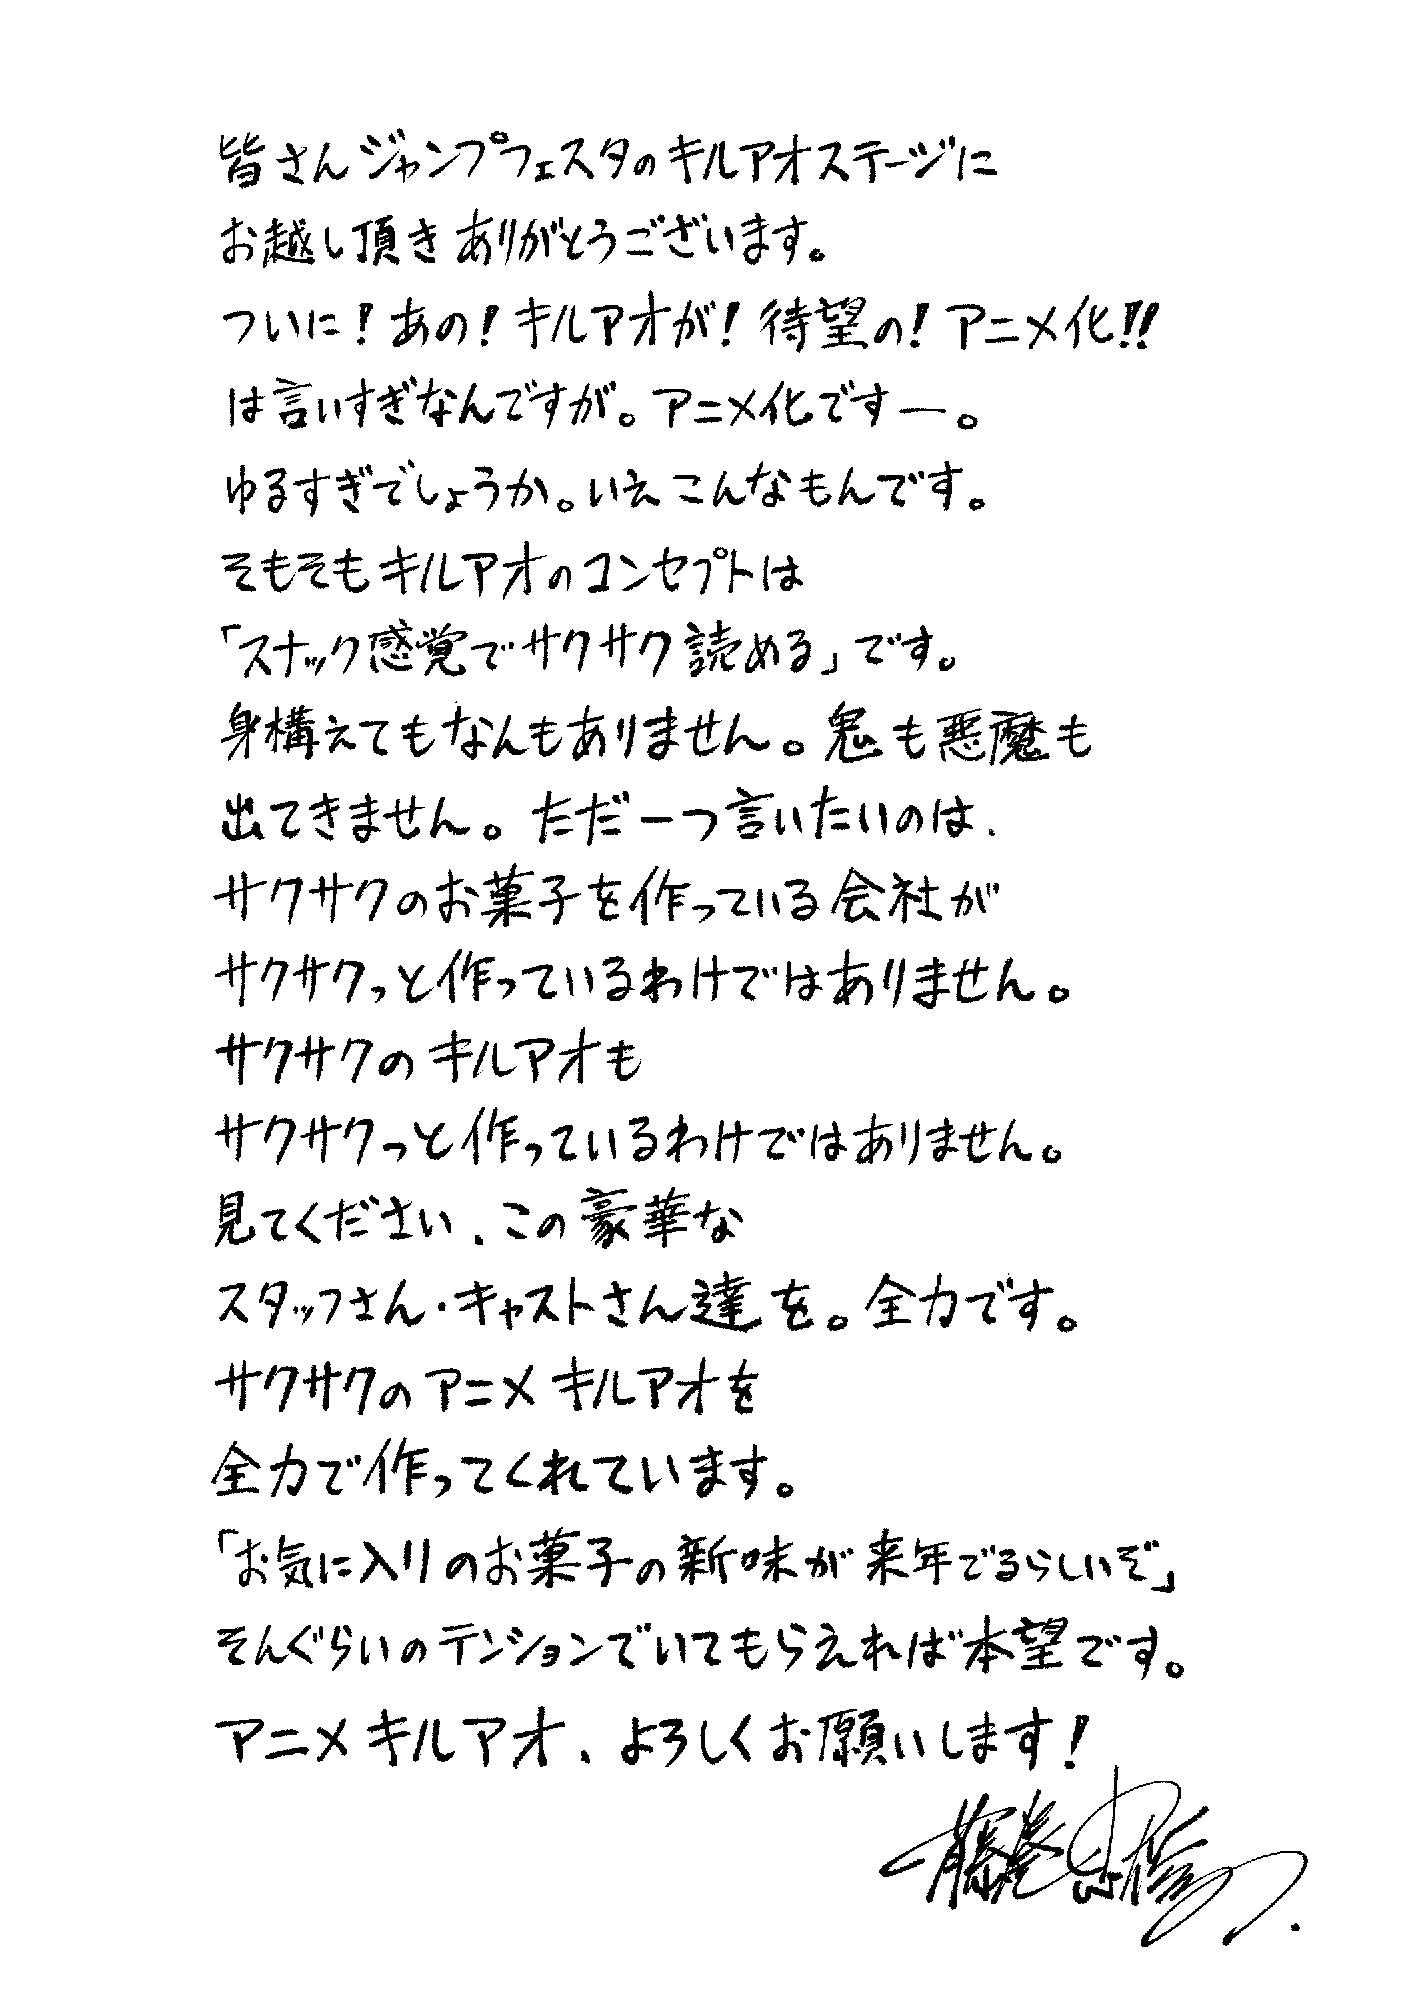 皆さんジャンプフェスタのキルアオステージに
お越し頂きありがとうございます。
ついに！あの！キルアオが！待望の！アニメ化！！
は言いすぎなんですが。アニメ化ですー。
ゆるすぎでしょうか。いえこんなもんです。
そもそもキルアオのコンセプトは
「スナック感覚でサクサク読める」です。
身構えてもなんもありません。鬼も悪魔も
出てきません。ただ一つ言いたいのは、
サクサクのお菓子を作っている会社が
サクサクっと作っているわけではありません。
サクサクのキルアオも
サクサクっと作っているわけではありません。
見てください、この豪華な
スタッフさん・キャストさん達を。全力です。
サクサクのアニメキルアオを
全力で作ってくれています。
「お気に入りのお菓子の新味が来年でるらしいぞ」
そんぐらいのテンションでいてもらえれば本望です。
アニメキルアオ、よろしくお願いします！
藤巻忠俊